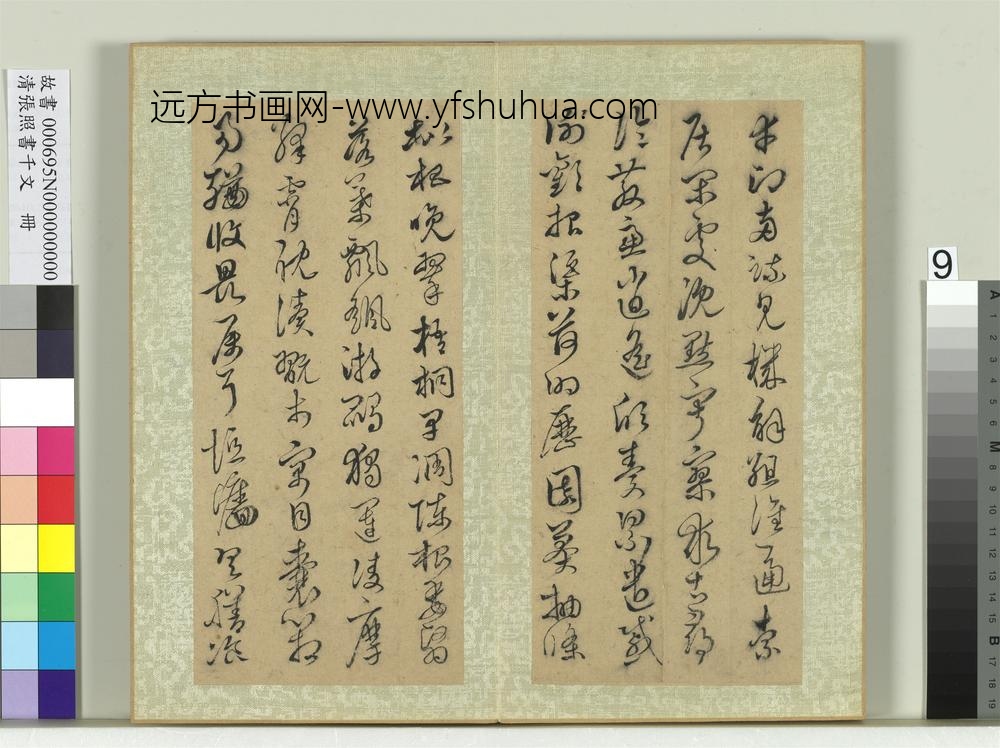 幸即兩疏見機解組誰逼索
居閑處沉默寂寥求古尋
論散慮逍遙欣奏累遣慼
謝歡招渠荷的歷園莽抽條
枇杷晚翠梧桐早凋陳根委翳
落葉飄颻游鵾獨運凌摩
絳霄耽讀翫市寓目囊箱
易輶攸畏屬耳垣牆具膳飡
远方书画网-www.yfshuhua.com
故書 000695N000000000
清張照書千文 冊
9
A 1 2 3 4 5 6 M 8 9 10 11 12 13 14 15 B 17 18 19